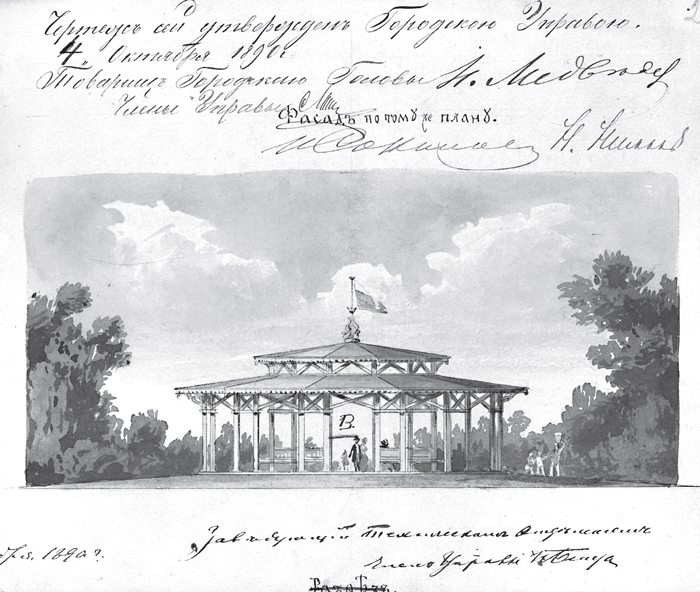 Чертежъ сей утвержденъ Городскою Управою.
4 Октября 1890 г.
Товарищъ Городскаго Головы Н. Медвѣдев
Члены Управы
Фасадъ по тому же плану.
Н.
В.
1890 г.
Завѣдующій Техническимъ Отдѣленіемъ
Членъ Управы